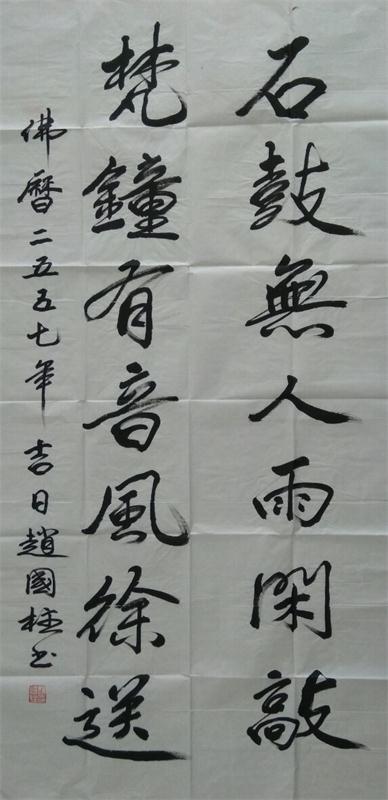 石鼓無人雨閑敲
梵鐘有音風徐送
佛曆二五五七年 吉日趙國柱书